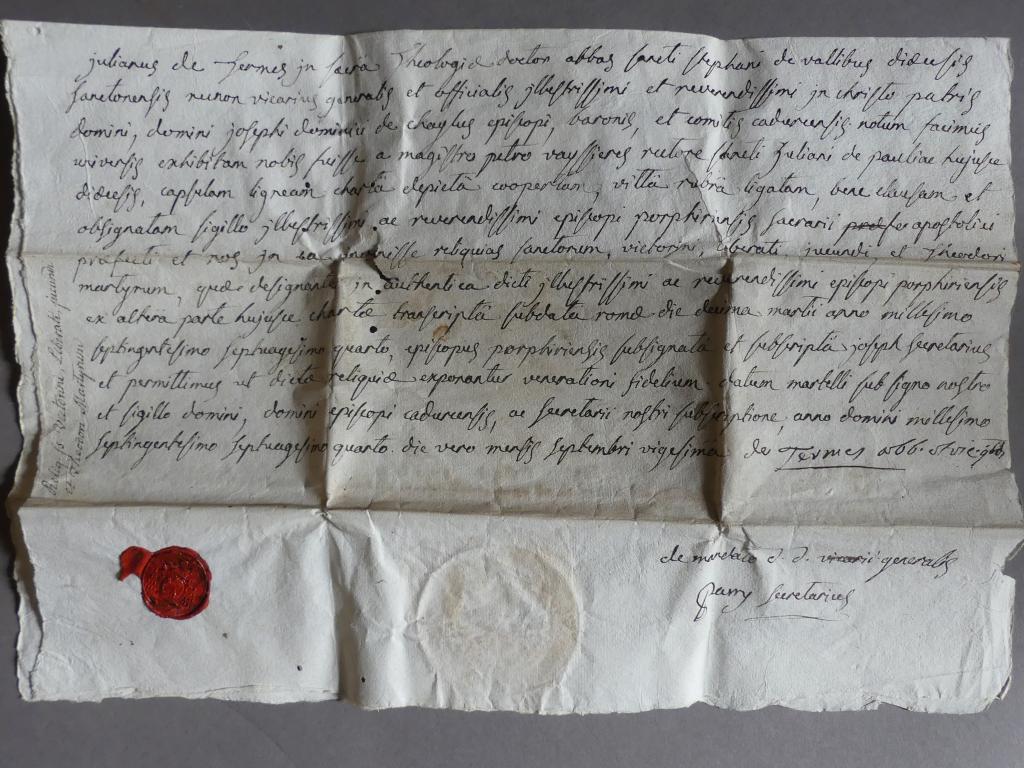 julianus de Termes jn sacra Theologiæ doctor abbas sancti stephani de vallibus diæcesis
sanctonensis necnon vicarius generalis et officialis jllustrissimi et reverendissimi jn christo patris
domini, domini josephi dominici de chaylus episcopi, baronis, et comitis cadurcensis. notum facimus
universis exhibitam nobis fuisse a magistro petro vayssieres rectore sancti Juliani de pauliac hujusce
diæcesis, capsulam ligneam chartâ depictâ coopertam, vittâ rubrâ ligatam, bene clausam et
obsignatam sigillo jllustrissimi ac reverendissimi episcopi porphiriensis sacrarii apostolici
præfecti et nos jn ea invenisse reliquias sanctorum, victorini, liberati, jucundi, et Theodori
martyrum, quæ designantur in authentica dicti jllustrissimi ac reverendissimi episcopi porphiriensis
ex altera parte hujusce chartæ transcriptâ subdata romæ die decima martii anno millesimo
septingentesimo septuagesimo quarto, episcopus porphiriensis subsignatâ et subscriptâ joseph secretarius
et permittimus ut dictæ reliquiæ exponantur venerationi fidelium. datum martelli sub signo nostro
et sigillo domini, domini episcopi cadurcensis, ac secretarii nostri subscriptione, anno domini millesimo
septingentesimo septuagesimo quarto. die vero mensis septembri vigesima de Termes abb. et vic. g͞блis
de mandato d. d. vicarii generalis
parry secretarius
Reliq. SS. Victorini, Liberati, jucundi
et Theodori Martyrum